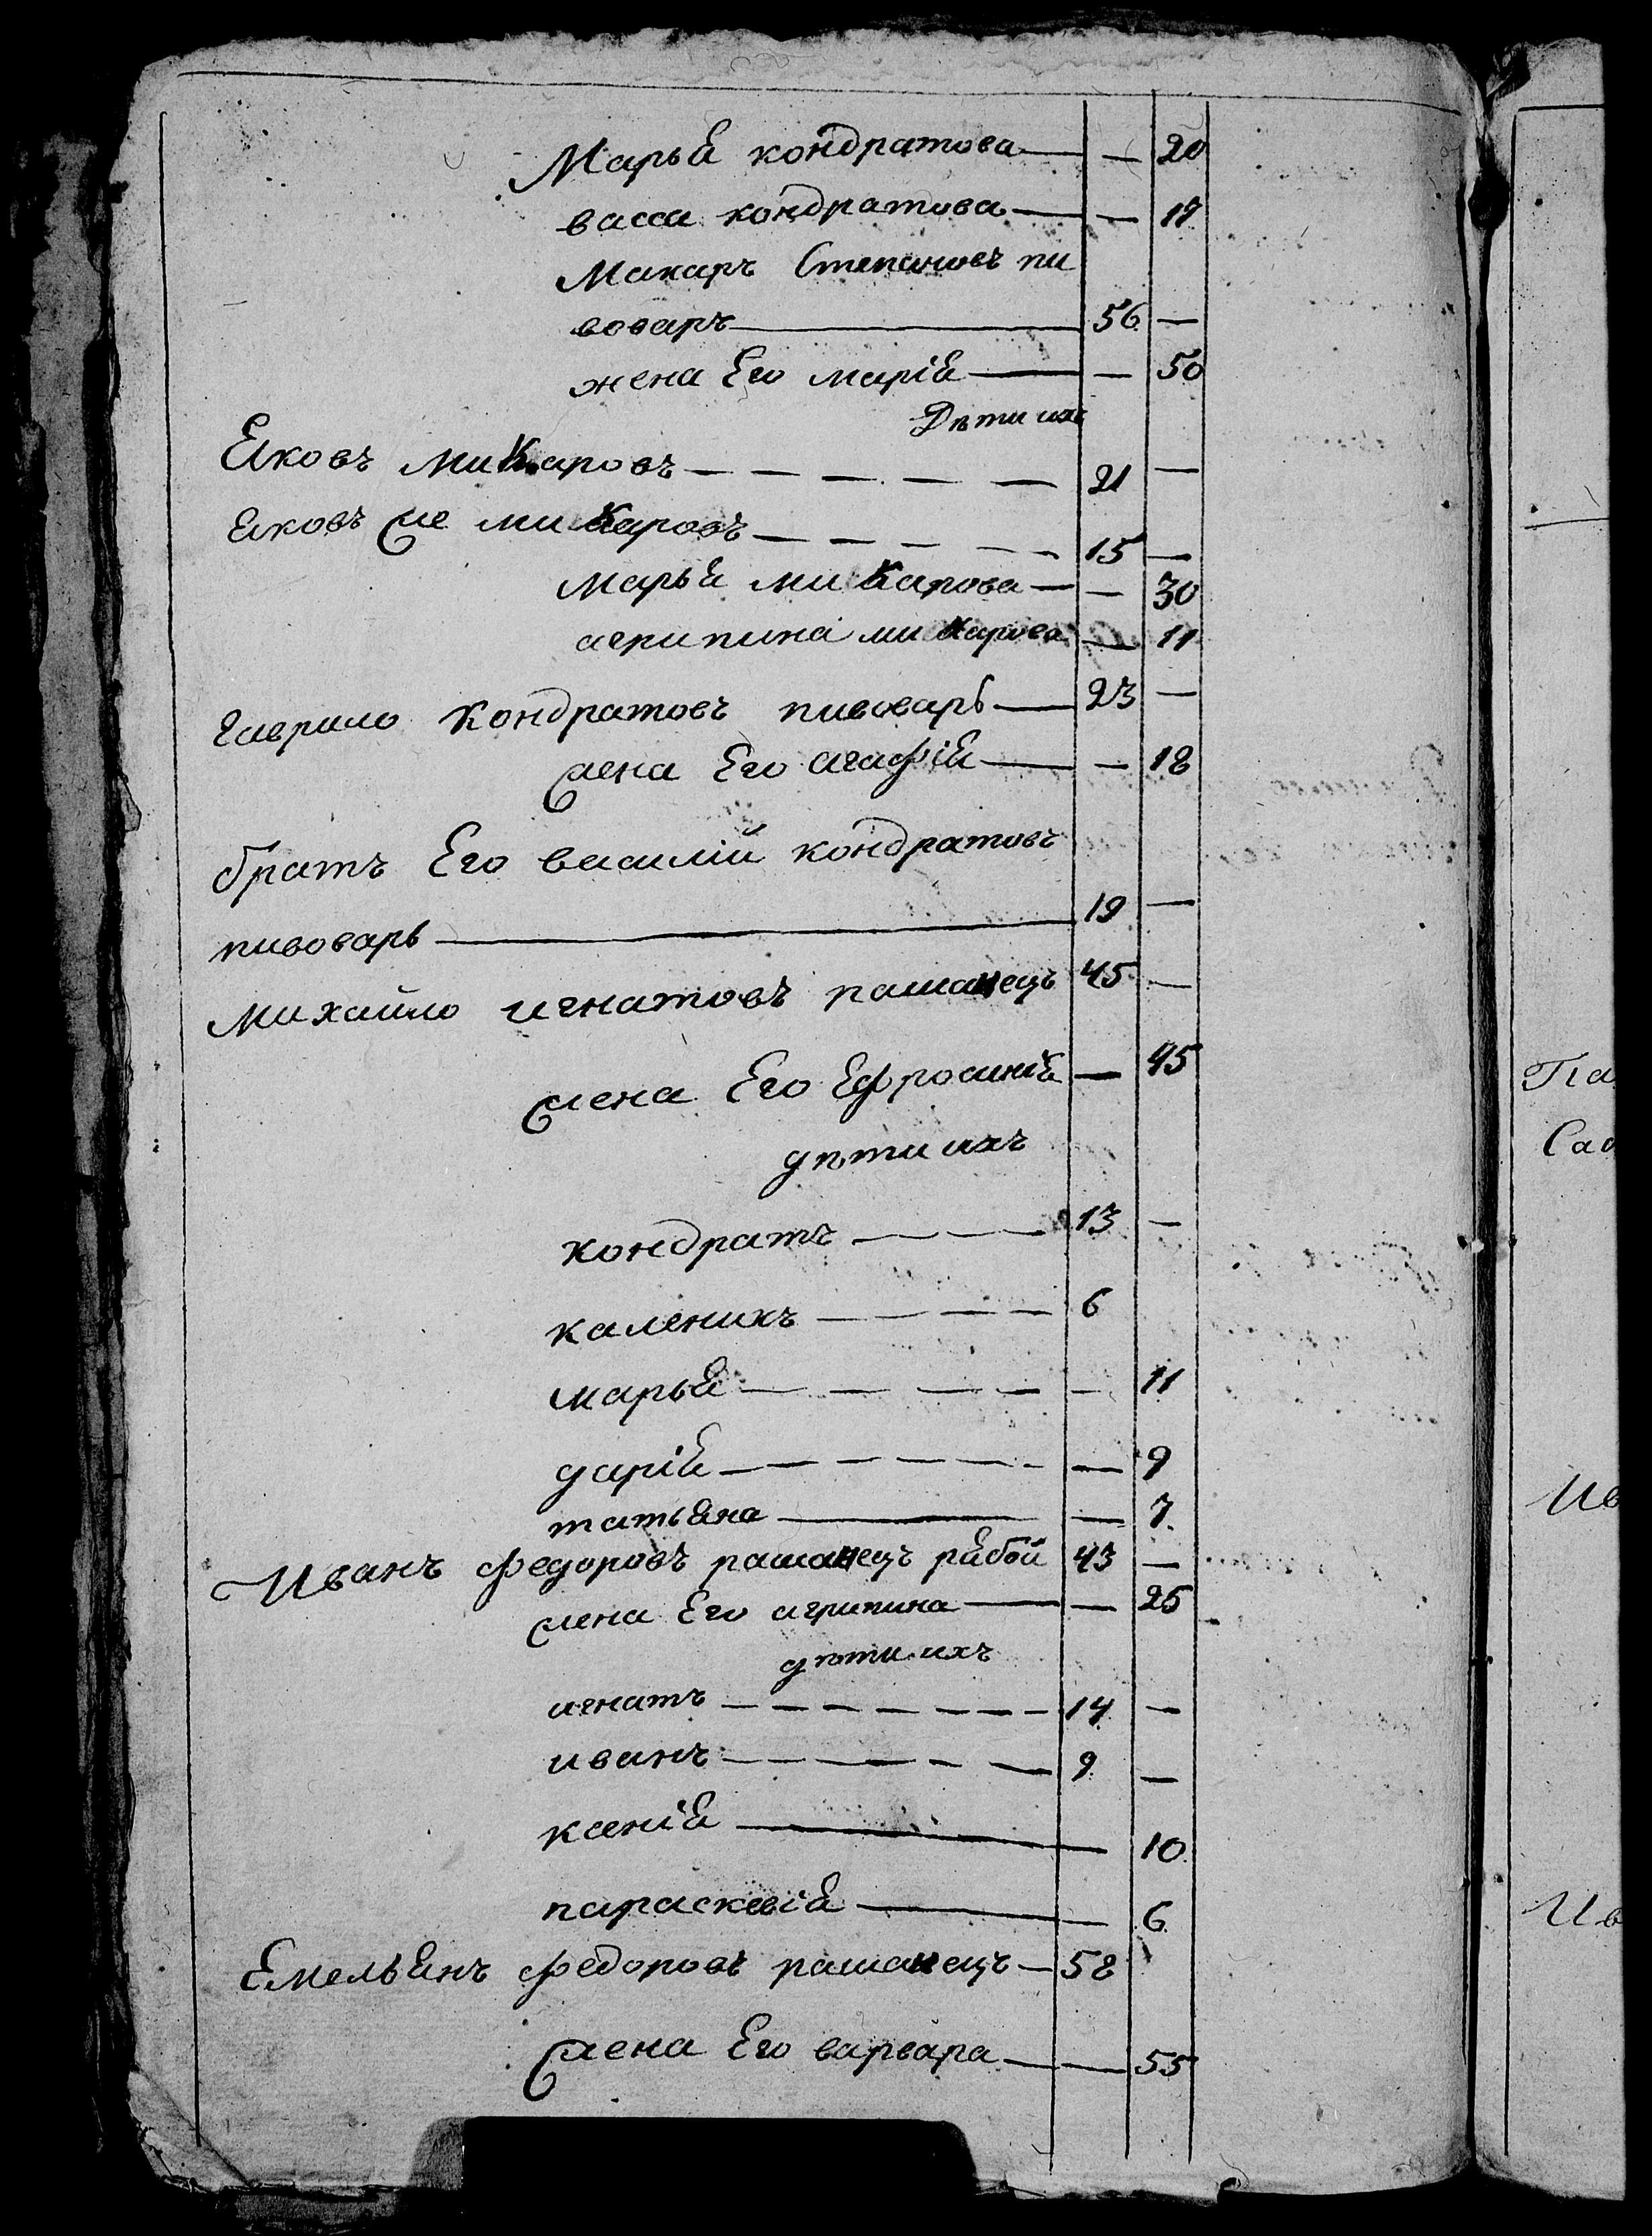 Марья кондратова — — 20
васса кондратова — — 17
Макаръ Степановъ пи
воваръ — 56 —
жена Его марія — — 50
Дѣти ихъ
Яковъ макаровъ — — — — — 21 —
яковъ же макаровъ — — — — — 15 —
марья макарова — — 30
агрипина макарова — 11
гаврило кондратовъ пивоварь — 23 —
жена Его агафія — — 18
братъ Его василій кондратовъ
пивоварь — 19 —
михайло игнатовъ рашанецъ 45 —
жена Его Ефросинія — 45
дѣти ихъ
кондратъ — — — 13 —
каленикъ — — — — 6
марья — — — — — 11
дарія — — — — — — 9
татьяна — — 7
Иванъ федоровъ рашанецъ рябой 43 —
жена Его агрипина — — 25
дѣти ихъ
игнатъ — — — — — — — 14 —
иванъ — — — — — 9 —
ксенія — — 10
параскевія — — 6
Емельянъ федоровъ рашанецъ — 58
жена Его варвара — — 55
Па
Са
Ив
Ив